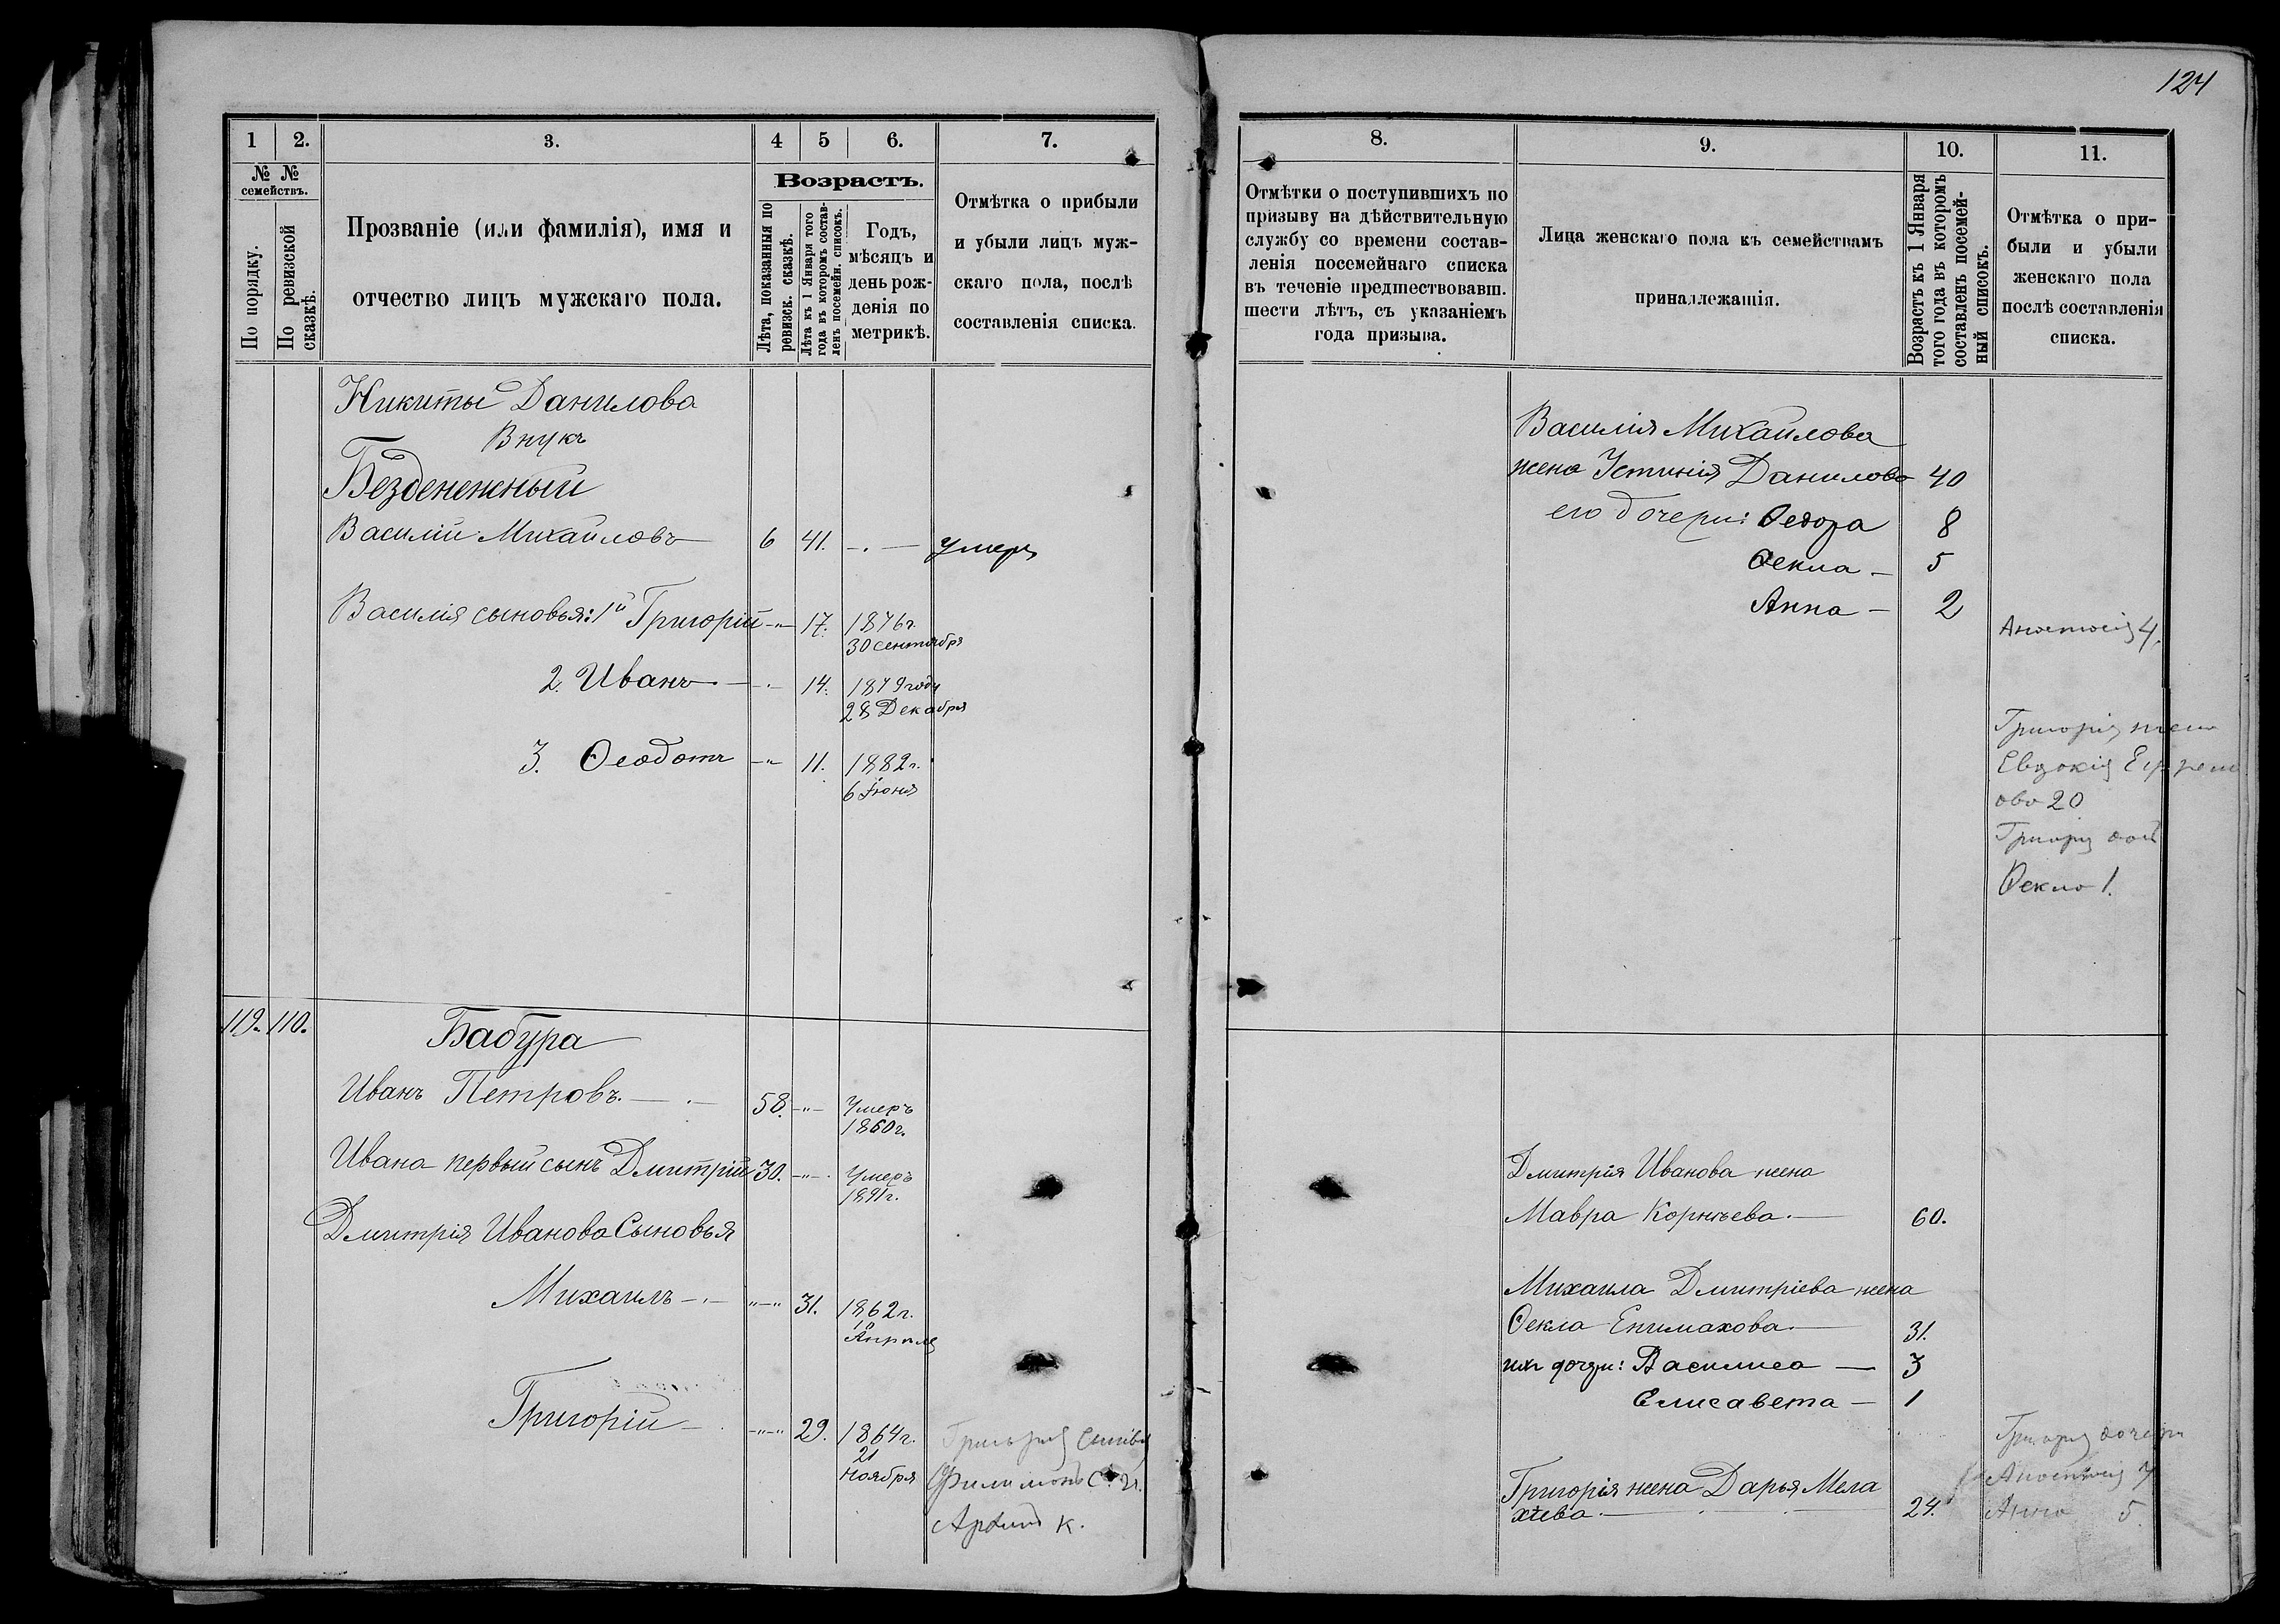 124
1
2.
3.
4
5
6.
7.
№ №
семействъ.
По порядку.
По ревизской
сказкѣ.
Прозваніе (или фамилія), имя и
отчество лицъ мужскаго пола.
Возрастъ.
Лѣта, показанныя по
ревизск. сказкѣ.
Лѣта къ 1 Января того
года въ которомъ состав-
ленъ посемейн. списокъ.
Годъ,
мѣсяцъ и
день рож-
денія по
метрикѣ.
Отмѣтка о прибыли
и убыли лицъ муж-
скаго пола, послѣ
составленія списка.
Никиты Данилова
Внукъ
Безденежный
Василій Михайловъ 6 41. умеръ
Василія сыновья: 1й Григорій 17. 1876г.
30 сентября
2. Иванъ 14. 1879 году
28 Декабря
3. Ѳеодотъ 11. 1882г.
6 Іюня
119. 110.
Бабура
Иванъ Петровъ. 58. Умеръ
1860г.
Ивана первый сынъ Дмитрій 30. Умеръ
1891г.
Дмитрія Иванова Сыновья
Михаилъ 31. 1862г.
Апрѣля
Григорій 29. 1864г.
21
ноября
Филимонъ
к.
8.
9.
10.
11.
Отмѣтки о поступившихъ по
призыву на дѣйствительную
службу со времени состав-
ленія посемейнаго списка
въ теченіе предшествовавш.
шести лѣтъ, съ указаніемъ
года призыва.
Лица женскаго пола къ семействамъ
принадлежащія.
Возрастъ къ 1 Января
того года въ которомъ
составленъ посемей-
ный списокъ.
Отмѣтка о при-
были и убыли
женскаго пола
послѣ составленія
списка.
Василія Михайлова
жена Устинія Данилова 40
его дочери: Ѳедора 8
Ѳекла 5
Анна 2
Анастасія 4.
Григорія жена
Евдокія Ефрем
ова 20
Григорія доч
Ѳекла 1.
Дмитрія Иванова жена
Мавра Корнѣева. 60.
Михаила Дмитріева жена
Ѳекла Епимахова. 31.
их дочери: Василиса 3
Елисавета 1
Григорія дочери
Анастасія 7
Григорія жена Дарья Мела
хтева. 24.
Анна 5.